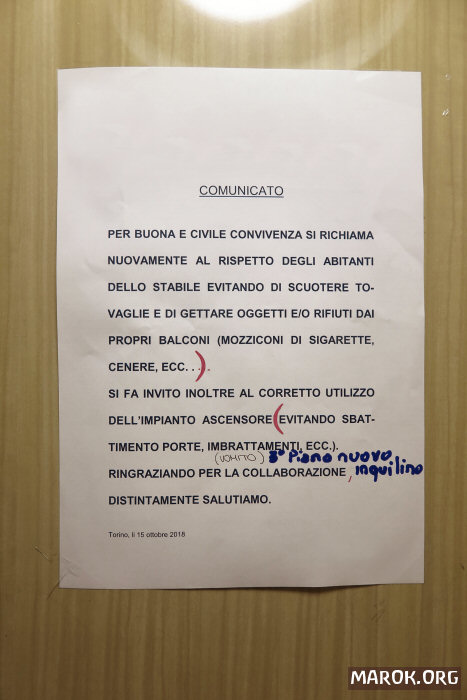 COMUNICATO
PER BUONA E CIVILE CONVIVENZA SI RICHIAMA
NUOVAMENTE AL RISPETTO DEGLI ABITANTI
DELLO STABILE EVITANDO DI SCUOTERE TO-
VAGLIE E DI GETTARE OGGETTI E/O RIFIUTI DAI
PROPRI BALCONI (MOZZICONI DI SIGARETTE,
CENERE, ECC. . ) .
SI FA INVITO INOLTRE AL CORRETTO UTILIZZO
DELL'IMPIANTO ASCENSORE (EVITANDO SBAT-
TIMENTO PORTE, IMBRATTAMENTI, ECC.).
(VOMITO) 3° Piano nuovo
RINGRAZIANDO PER LA COLLABORAZIONE, inquilino
DISTINTAMENTE SALUTIAMO.
Torino, li 15 ottobre 2018
MAROK.ORG